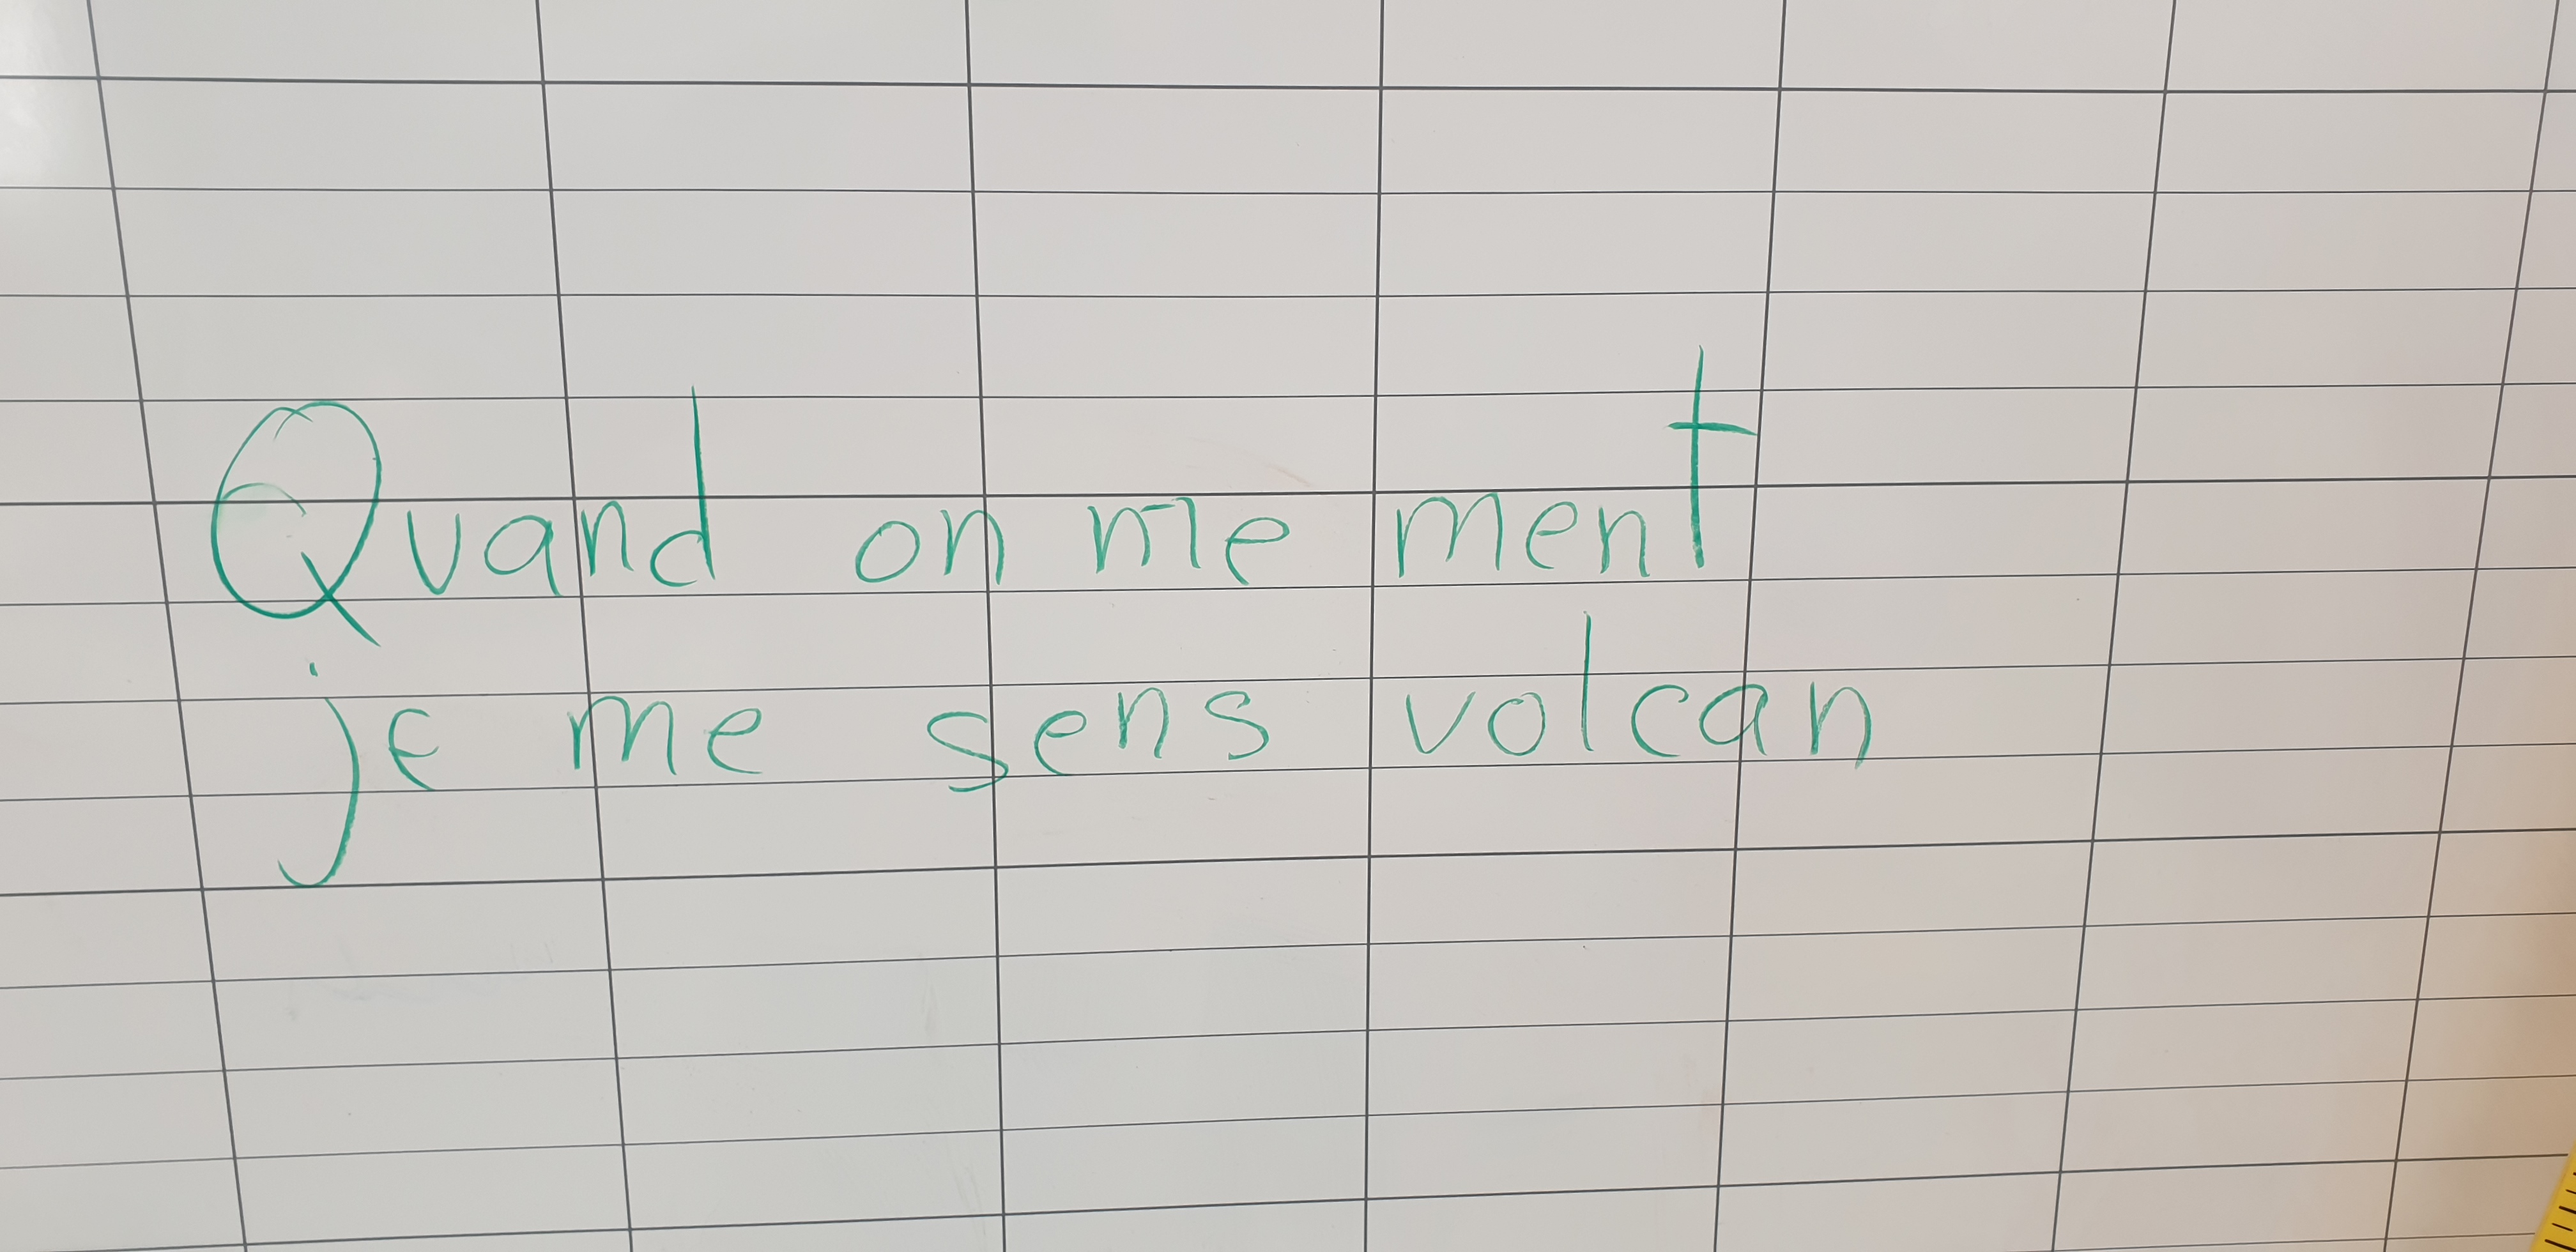 Quand on me ment
je me sens volcan